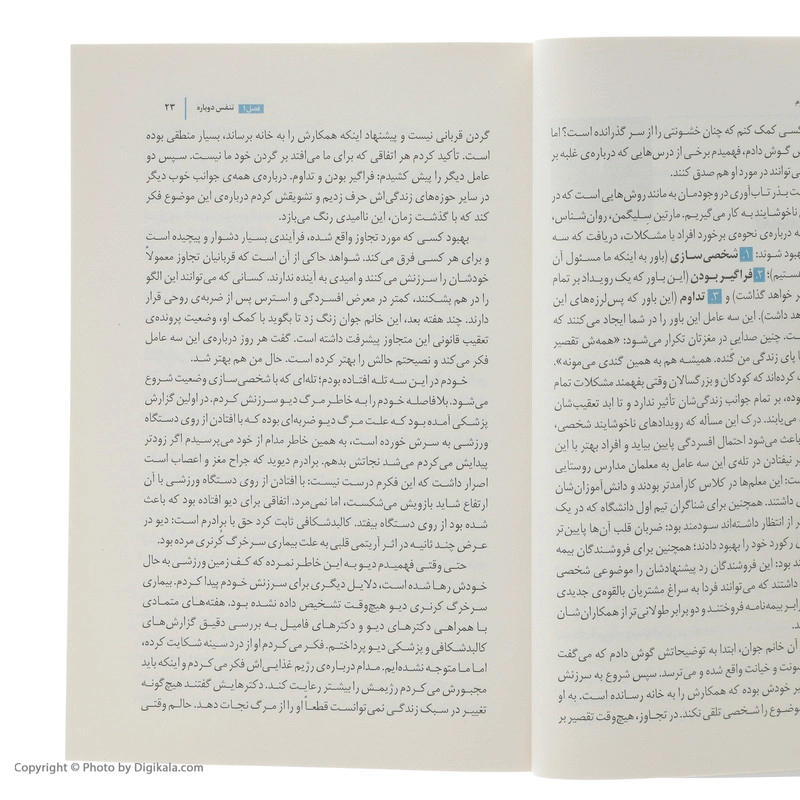 کسی کمک کنم که چنان خشونتی را از سر گذرانده است؟ اما
گوش دادم، فهمیدم برخی از درس‌هایی که درباره‌ی غلبه بر
می‌توانند در مورد او هم صدق کنند.
بذر تاب‌آوری در وجودمان به مانند روش‌هایی است که در
ناخوشایند به کار می‌گیریم. مارتین سلیگمن، روان‌شناس،
درباره‌ی نحوه‌ی برخورد افراد با مشکلات، دریافت که سه
بهبود شوند: ۱. شخصی‌سازی (باور به اینکه ما مسئول آن
هستیم)؛ ۲. فراگیر بودن (این باور که یک رویداد بر تمام
خواهد گذاشت) و ۳. تداوم (این باور که پس‌لرزه‌های این
داشت). این سه عامل این باور را در شما ایجاد می‌کنند که
چنین صدایی در مغزتان تکرار می‌شود: «همه‌ش تقصیر
پای زندگی من گنده. همیشه هم به همین گندی می‌مونه».
کرده‌اند که کودکان و بزرگسالان وقتی بفهمند مشکلات تمام
بر تمام جوانب زندگی‌شان تأثیر ندارد و تا ابد تعقیب‌شان
می‌یابند. درک این مسأله که رویدادهای ناخوشایند شخصی،
باعث می‌شود احتمال افسردگی پایین بیاید و افراد بهتر با این
نیفتادن در تله‌ی این سه عامل به معلمان مدارس روستایی
این معلم‌ها در کلاس کارآمدتر بودند و دانش‌آموزان‌شان
داشتند. همچنین برای شناگران تیم اول دانشگاه که در یک
از انتظار داشته‌اند سودمند بود: ضربان قلب آن‌ها پایین‌تر
رکورد خود را بهبود دادند؛ همچنین برای فروشندگان بیمه
بود: این فروشندگان رد پیشنهادشان را موضوعی شخصی
داشتند که می‌توانند فردا به سراغ مشتریان بالقوه‌ی جدیدی
بیمه‌نامه فروختند و دو برابر طولانی‌تر از همکاران‌شان
آن خانم جوان، ابتدا به توضیحاتش گوش دادم که می‌گفت
و خیانت واقع شده و می‌ترسد. سپس شروع به سرزنش
خودش بوده که همکارش را به خانه رسانده است. به او
موضوع را شخصی تلقی نکند. در تجاوز، هیچ‌وقت تقصیر بر
فصل ۱ تنفس دوباره ۲۳
گردن قربانی نیست و پیشنهاد اینکه همکارش را به خانه برساند، بسیار منطقی بوده
است. تأکید کردم هر اتفاقی که برای ما می‌افتد بر گردن خود ما نیست. سپس دو
عامل دیگر را پیش کشیدم: فراگیر بودن و تداوم. درباره‌ی همه‌ی جوانب خوب دیگر
در سایر حوزه‌های زندگی‌اش حرف زدیم و تشویقش کردم درباره‌ی این موضوع فکر
کند که با گذشت زمان، این ناامیدی رنگ می‌بازد.
بهبود کسی که مورد تجاوز واقع شده، فرآیندی بسیار دشوار و پیچیده است
و برای هر کسی فرق می‌کند. شواهد حاکی از آن است که قربانیان تجاوز معمولاً
خودشان را سرزنش می‌کنند و امیدی به آینده ندارند. کسانی که می‌توانند این الگو
را در هم بشکنند، کمتر در معرض افسردگی و استرس پس از ضربه‌ی روحی قرار
دارند. چند هفته بعد، این خانم جوان زنگ زد تا بگوید با کمک او، وضعیت پرونده‌ی
تعقیب قانونی این متجاوز پیشرفت داشته است. گفت هر روز درباره‌ی این سه عامل
فکر می‌کند و نصیحتم حالش را بهتر کرده است. حال من هم بهتر شد.
خودم در این سه تله افتاده بودم؛ تله‌ای که با شخصی‌سازی وضعیت شروع
می‌شود. بلافاصله خودم را به خاطر مرگ دیو سرزنش کردم. در اولین گزارش
پزشکی آمده بود که علت مرگ دیو ضربه‌ای بوده که با افتادن از روی دستگاه
ورزشی به سرش خورده است، به همین خاطر مدام از خود می‌پرسیدم اگر زودتر
پیدایش می‌کردم می‌شد نجاتش بدهم. برادرم دیوید که جراح مغز و اعصاب است
اصرار داشت که این فکرم درست نیست: با افتادن از روی دستگاه ورزشی با آن
ارتفاع شاید بازویش می‌شکست، اما نمی‌مرد. اتفاقی برای دیو افتاده بود که باعث
شده بود از روی دستگاه بیفتد. کالبدشکافی ثابت کرد حق با برادرم است: دیو در
عرض چند ثانیه در اثر آریتمی قلبی به علت بیماری سرخرگ کُرنری مرده بود.
حتی وقتی فهمیدم دیو به این خاطر نمرده که کف زمین ورزشی به حال
خودش رها شده است، دلایل دیگری برای سرزنش خودم پیدا کردم. بیماری
سرخرگ کرنری دیو هیچ‌وقت تشخیص داده نشده بود. هفته‌های متمادی
با همراهی دکترهای دیو و دکترهای فامیل به بررسی دقیق گزارش‌های
کالبدشکافی و پزشکی دیو پرداختم. فکر می‌کردم او از درد سینه شکایت کرده،
اما ما متوجه نشده‌ایم. مدام درباره‌ی رژیم غذایی‌اش فکر می‌کردم و اینکه باید
مجبورش می‌کردم رژیمش را بیشتر رعایت کند. دکترهایش گفتند هیچ‌گونه
تغییر در سبک زندگی نمی‌توانست قطعاً او را از مرگ نجات دهد. حالم وقتی
Copyright © Photo by Digikala.com